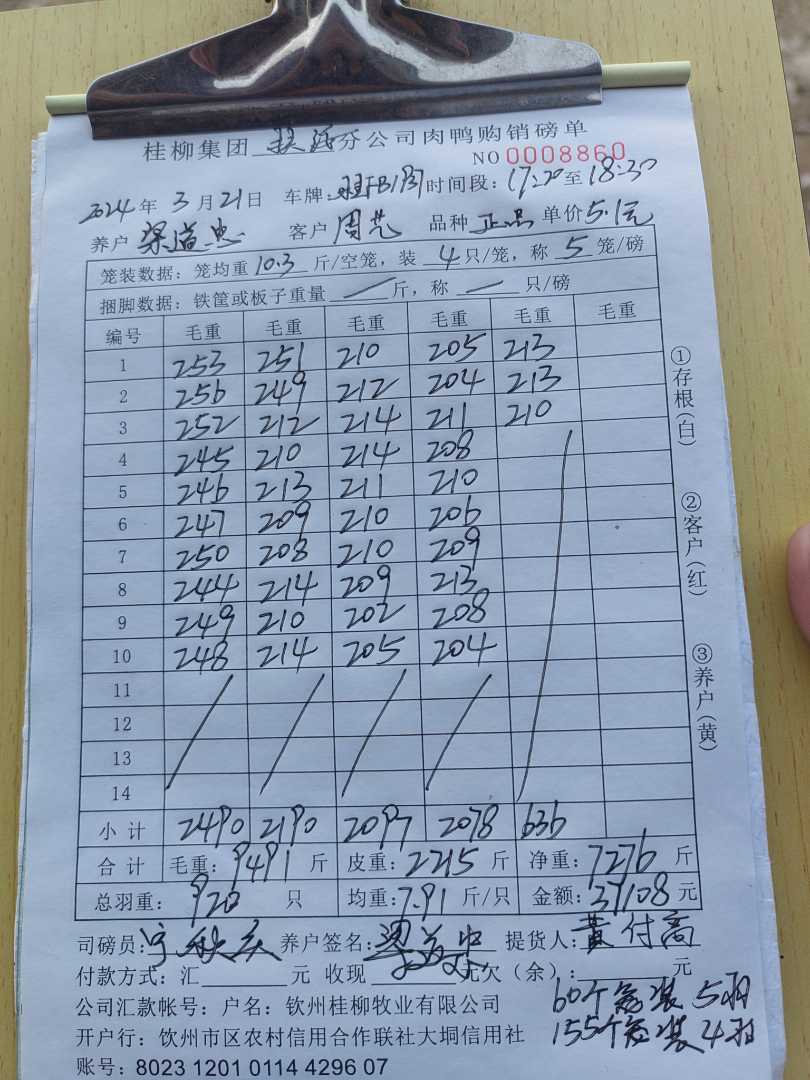 桂柳集团 分公司肉鸭购销磅单
NO 0008860
2024年 3月21日 车牌: 时间段:17:20至18:30
养户 忠 客户 周芑 品种 正品 单价5.1元
笼装数据:笼均重10.3斤/空笼,装 4只/笼,称 5 笼/磅
捆脚数据:铁筐或板子重量 — 斤,称 — 只/磅
编号 毛重 毛重 毛重 毛重 毛重 毛重
1 253 251 210 205 213
2 256 249 212 204 213
3 252 212 214 211 210
4 245 210 214 208
5 246 213 211 210
6 247 209 210 206
7 250 208 210 209
8 244 214 209 213
9 249 210 202 208
10 248 214 205 204
11
12
13
14
小计 2490 2190 2097 2078 636
合计 毛重:9491斤 皮重:2215斤 净重:7276斤
总羽重:920 只 均重:7.91斤/只 金额:37108元
司磅员: 养户签名: 提货人:黄付高
付款方式:汇 元 收现 元欠(余): 元
公司汇款帐号:户名:钦州桂柳牧业有限公司
60个笼装5羽
开户行:饮州市区农村信用合作联社大垌信用社
155个笼装4羽
账号:8023 1201 0114 4296 07
①存根(白)
②客户(红)
③养户(黄)